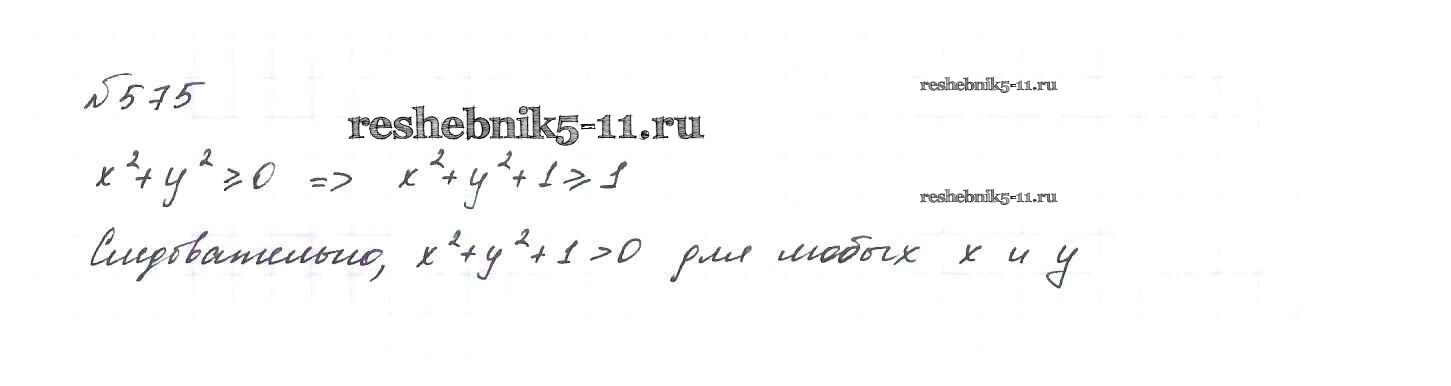 №575
reshebnik5-11.ru
reshebnik5-11.ru
x² + y² ⩾ 0 => x² + y² + 1 ⩾ 1
reshebnik5-11.ru
Следовательно, x² + y² + 1 > 0 для любых x и y